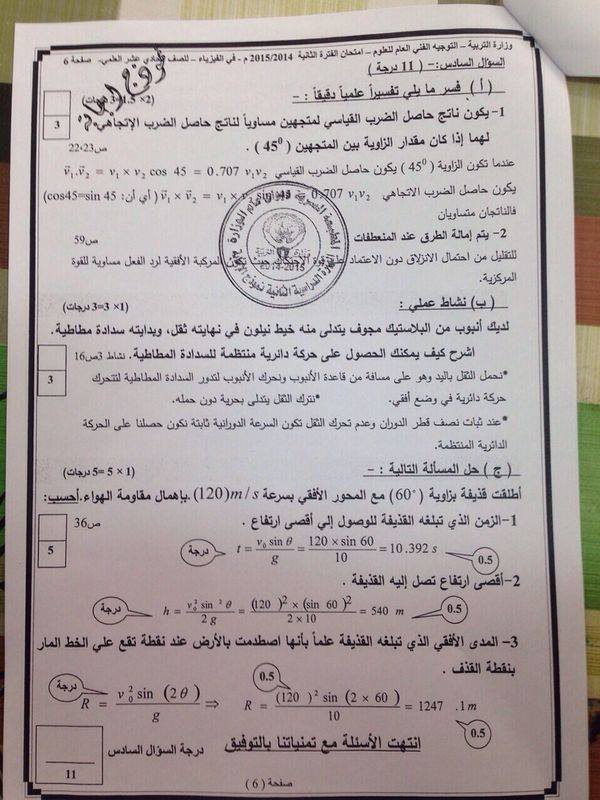 وزارة التربية – التوجيه الفني العام للعلوم – امتحان الفترة الثانية 2015/2014 م - في الفيزياء – للصف الحادي عشر العلمي. صفحة 6
السؤال السادس:- ( 11 درجة )
نموذج إجابة
( أ ) فسر ما يلي تفسيراً علمياً دقيقاً : -
(2× 1.5=3 درجات)
1- يكون ناتج حاصل الضرب القياسي لمتجهين مساوياً لناتج حاصل الضرب الإتجاهي
3
لهما إذا كان مقدار الزاوية بين المتجهين ( 45⁰ ) .
ص23،22
عندما تكون الزاوية ( 45⁰ ) يكون حاصل الضرب القياسي v⃗₁.v⃗₂ = v₁ × v₂ cos 45 = 0.707 v₁v₂
يكون حاصل الضرب الاتجاهي v⃗₁ × v⃗₂ = v₁ × v sin 45 0.707 v₁v₂ ( أي أن: cos45=sin 45)
فالناتجان متساويان
2- يتم إمالة الطرق عند المنعطفات
ص59
للتقليل من احتمال الانزلاق دون الاعتماد على قوة الاحتكاك حيث تكون المركبة الأفقية لرد الفعل مساوية للقوة
المركزية.
2014-2015
( ب ) نشاط عملي :
(1× 3=3 درجات)
لديك أنبوب من البلاستيك مجوف يتدلى منه خيط نيلون في نهايته ثقل، وبدايته سدادة مطاطية.
اشرح كيف يمكنك الحصول على حركة دائرية منتظمة للسدادة المطاطية. نشاط 3ص16
3
*نحمل الثقل باليد وهو على مسافة من قاعدة الأنبوب ونحرك الأنبوب لتدور السدادة المطاطية لتتحرك
حركة دائرية في وضع أفقي. *نترك الثقل يتدلى بحرية دون حمله.
*عند ثبات نصف قطر الدوران وعدم تحرك الثقل تكون السرعة الدورانية ثابتة نكون حصلنا على الحركة
الدائرية المنتظمة.
( ج ) حل المسألة التالية : -
(1× 5=5 درجات)
أطلقت قذيفة بزاوية (60°) مع المحور الأفقي بسرعة (120)m/s.بإهمال مقاومة الهواء.أحسب:
1- الزمن الذي تبلغه القذيفة للوصول إلي أقصى ارتفاع .
ص36
5
درجة t = v₀ sin θ / g = 120 × sin 60 / 10 = 10.392 s 0.5
2- أقصى ارتفاع تصل إليه القذيفة .
درجة h = v₀² sin² θ / 2 g = (120 )² × (sin 60 )² / 2 × 10 = 540 m 0.5
3- المدى الأفقي الذي تبلغه القذيفة علماً بأنها اصطدمت بالأرض عند نقطة تقع علي الخط المار
بنقطة القذف .
درجة R = v₀² sin (2θ) / g ⇒ R = (120 )² sin (2 × 60 ) / 10 = 1247 .1m 0.5 0.5
انتهت الأسئلة مع تمنياتنا بالتوفيق
درجة السؤال السادس
11
صفحة ( 6 )